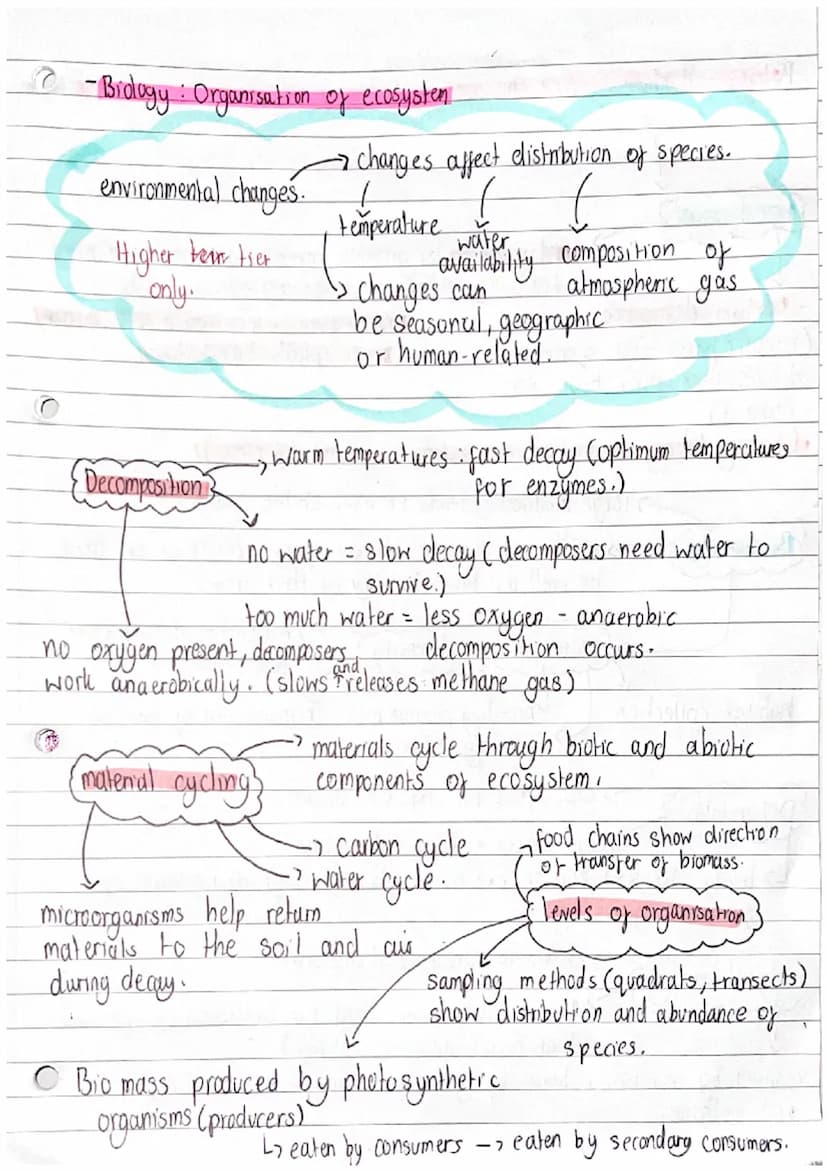 - Biology : Organisation of ecosystem
environmental changes. → changes affect distribution of species.
temperature
water
availability
composition of
atmospheric gas
Higher tier
only.
changes can
be seasonal, geographic
or human-related.
Decomposition
warm temperatures : fast decay (optimum temperatures
for enzymes.)
no water = slow decay (decomposers need water to
survive.)
too much water = less oxygen - anaerobic
decomposition occurs.
no oxygen present, decomposers
work anaerobically. (slows and releases methane gas)
material cycling
materials cycle through biotic and abiotic
components of ecosystem.
carbon cycle
water cycle.
microorganisms help return
materials to the soil and air
during decay.
food chains show direction
of transfer of biomass.
levels of organisation
sampling methods (quadrats, transects)
show distribution and abundance of
species.
Bio mass produced by photosynthetic
organisms (producers)
↳ eaten by consumers → eaten by secondary consumers.